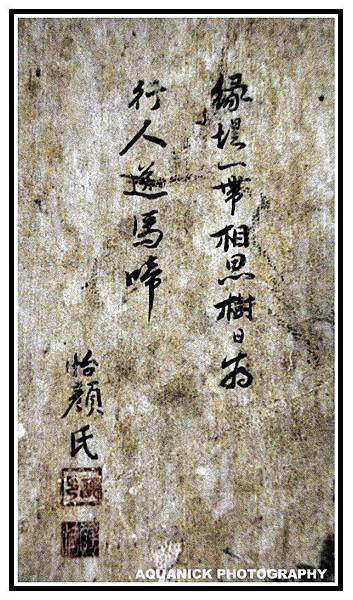 緣堤一帶相思樹日為
行人送馬啼
怡顏氏
AQUANICK PHOTOGRAPHY